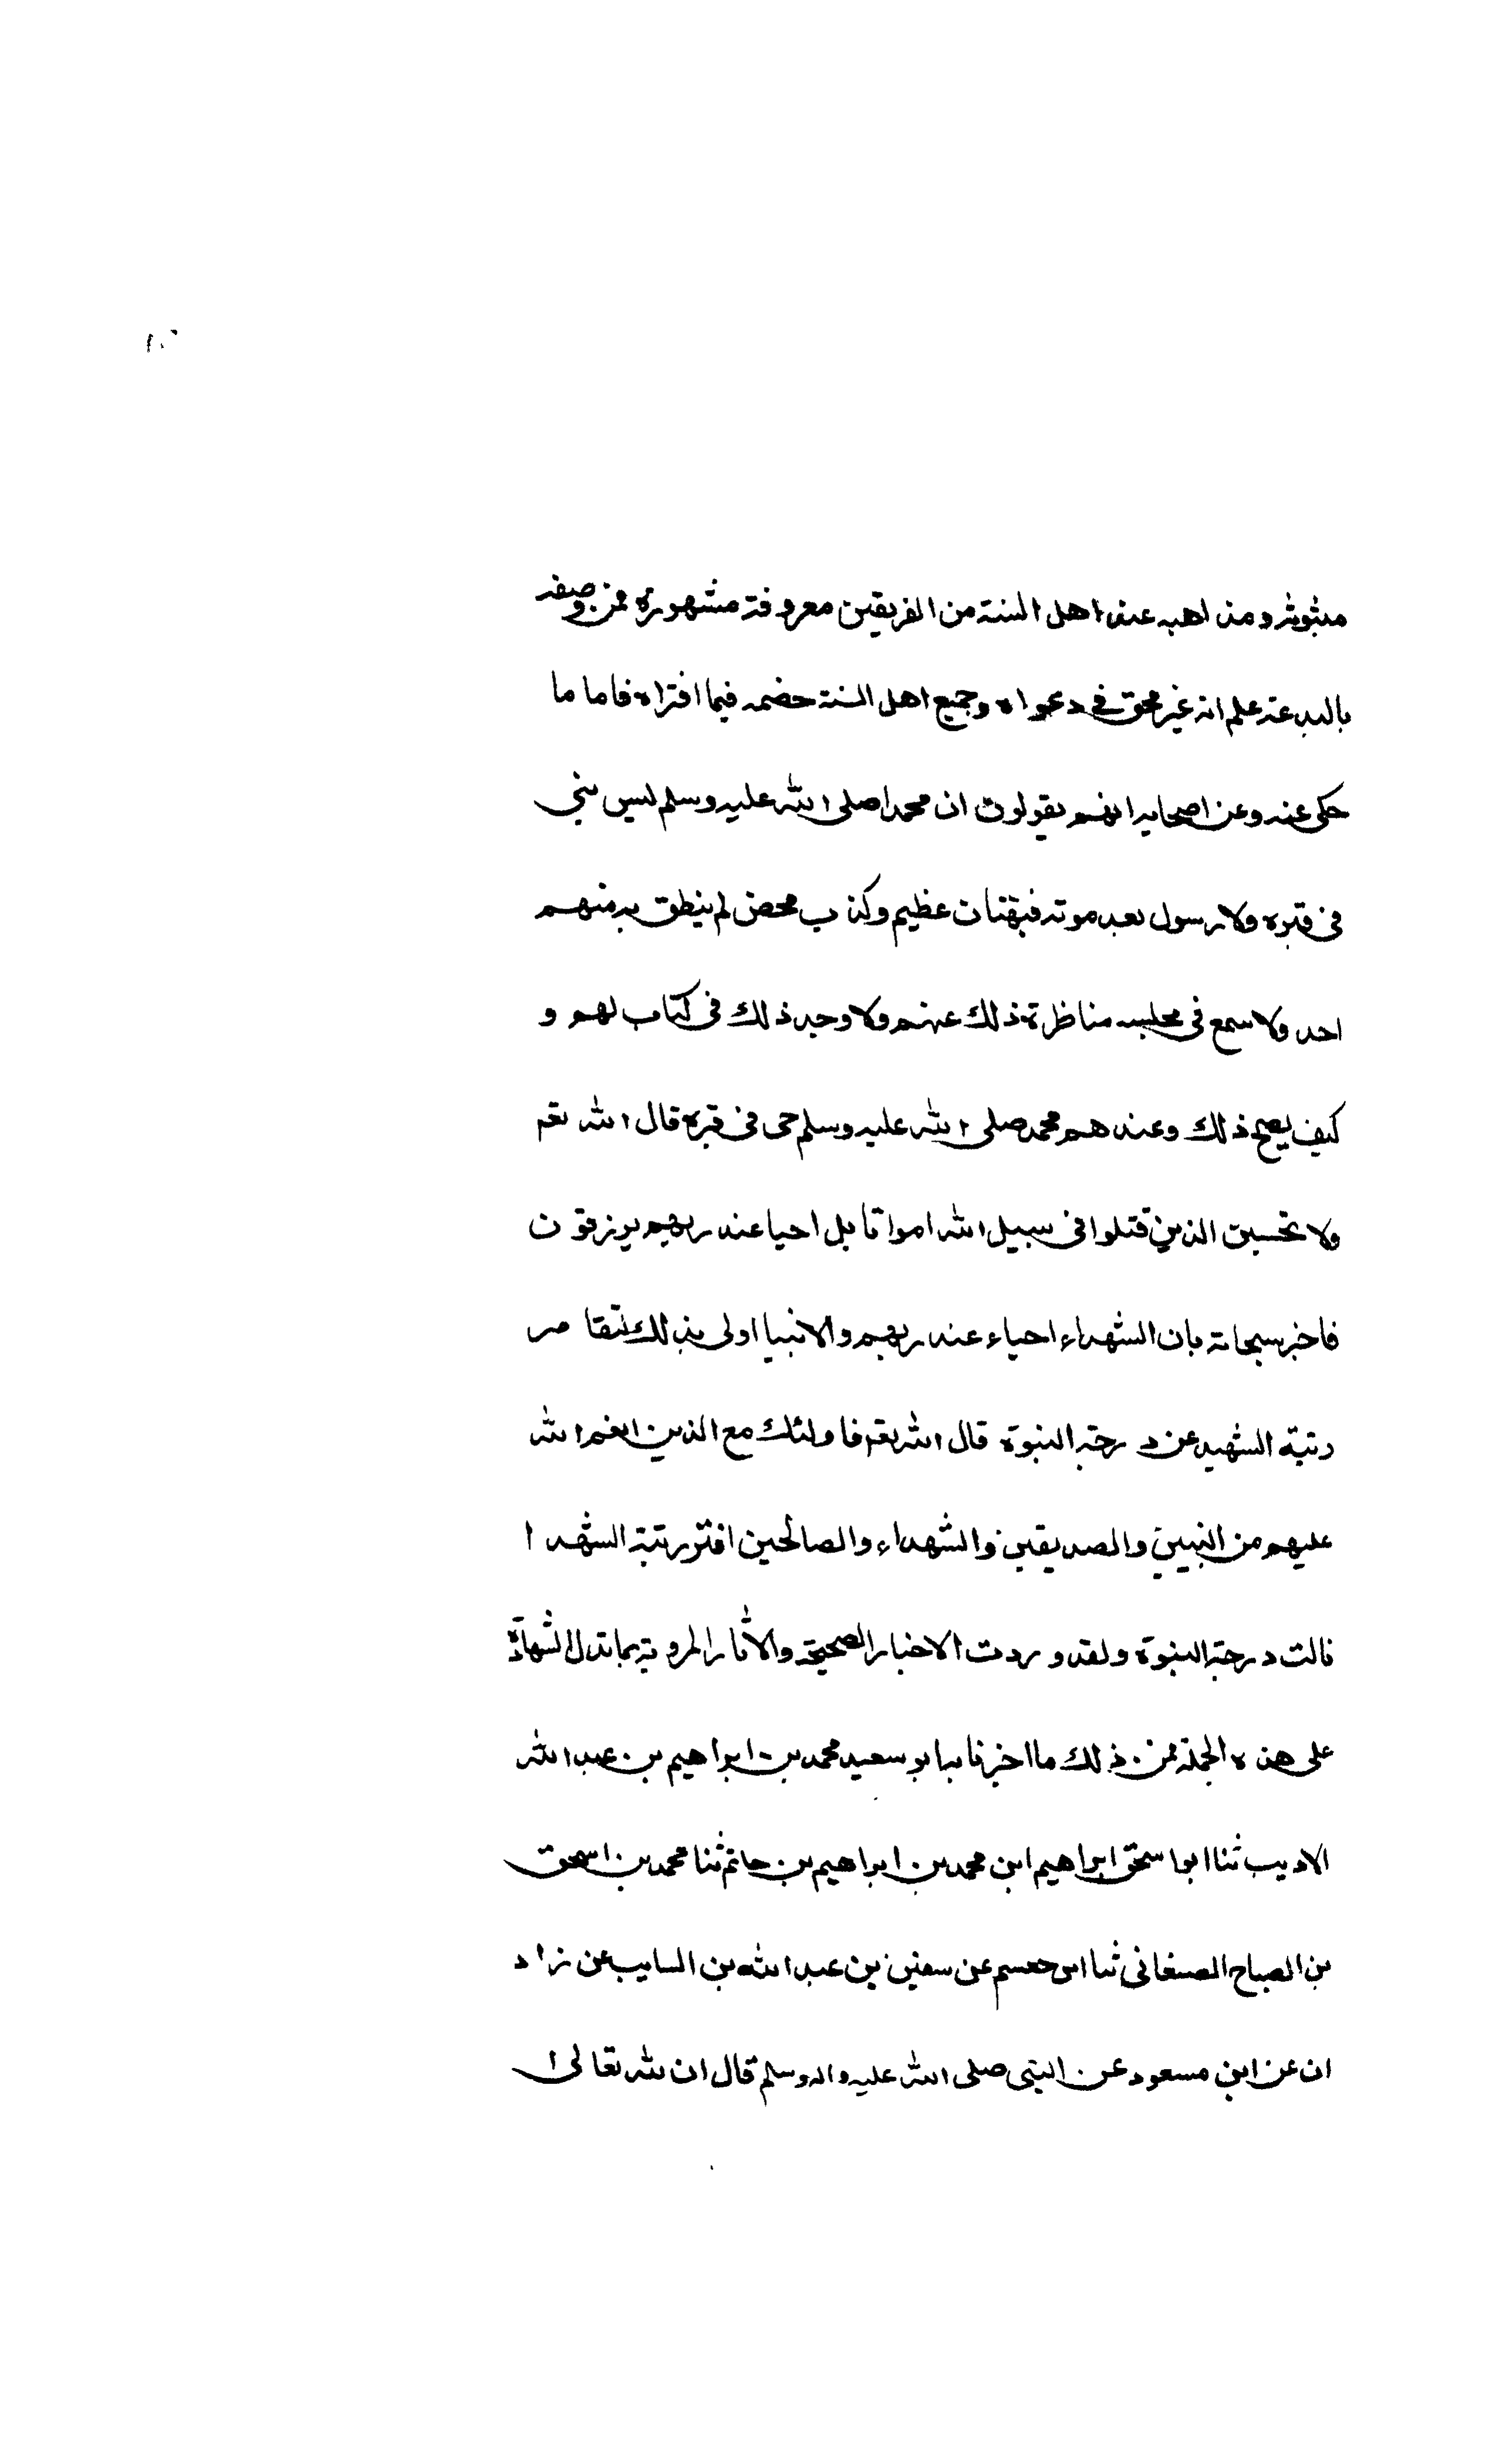 مبثوثه ومذاهبه عند اهل السنة من الفريقين معروفة مشهورة فمن وصفه
بالبدعة علم انه غير محق في دعواه وجميع اهل السنة خصمه فيما افتراه فاما ما
حكى عنه وعن اصحابه انهم يقولون ان محمدا صلى الله عليه وسلم ليس بنبي
في قبره ولا رسول بعد موته فبهتان عظيم وكذب محض لم ينطق به منهم
احد ولا سمع في مجلس مناظرة ذلك عنهم ولا وجد ذلك في كتاب لهم و
كيف يصح ذلك وعندهم محمد صلى الله عليه وسلم حي في قبره قال الله تعم
ولا تحسبن الذين قتلوا في سبيل الله امواتا بل احيا عند ربهم يرزقون
فاخبر سبحانه بان الشهداء احياء عند ربهم والانبيا اولى بذلك لتقاصر
رتبة الشهيد عن درجة النبوة قال الله تعم فاولئك مع الذين انعم الله
عليهم من النبيين والصديقين والشهداء والصالحين افترر رتبة الشهدا
نالت درجة النبوة ولقد وردت الاخبار الصحيحة والاثار المروية بما تدل الشهادة
على هذه الجملة فمن ذلك ما اخبرنا ببا بو سعيد محمد بن ابراهيم بن عبد الله
الاديب ثنا ابوا سحق ابراهيم ابن محمد بن ابراهيم بن حاتم ثنا محمد بن اسحق
بن الصباح الصنعاني ثنا ابن جعسم عن سفين بن عبد الله بن السايب عن زاد
ان عن ابن مسعود عن النبي صلى الله عليه واله وسلم قال ان لله تعالى ا